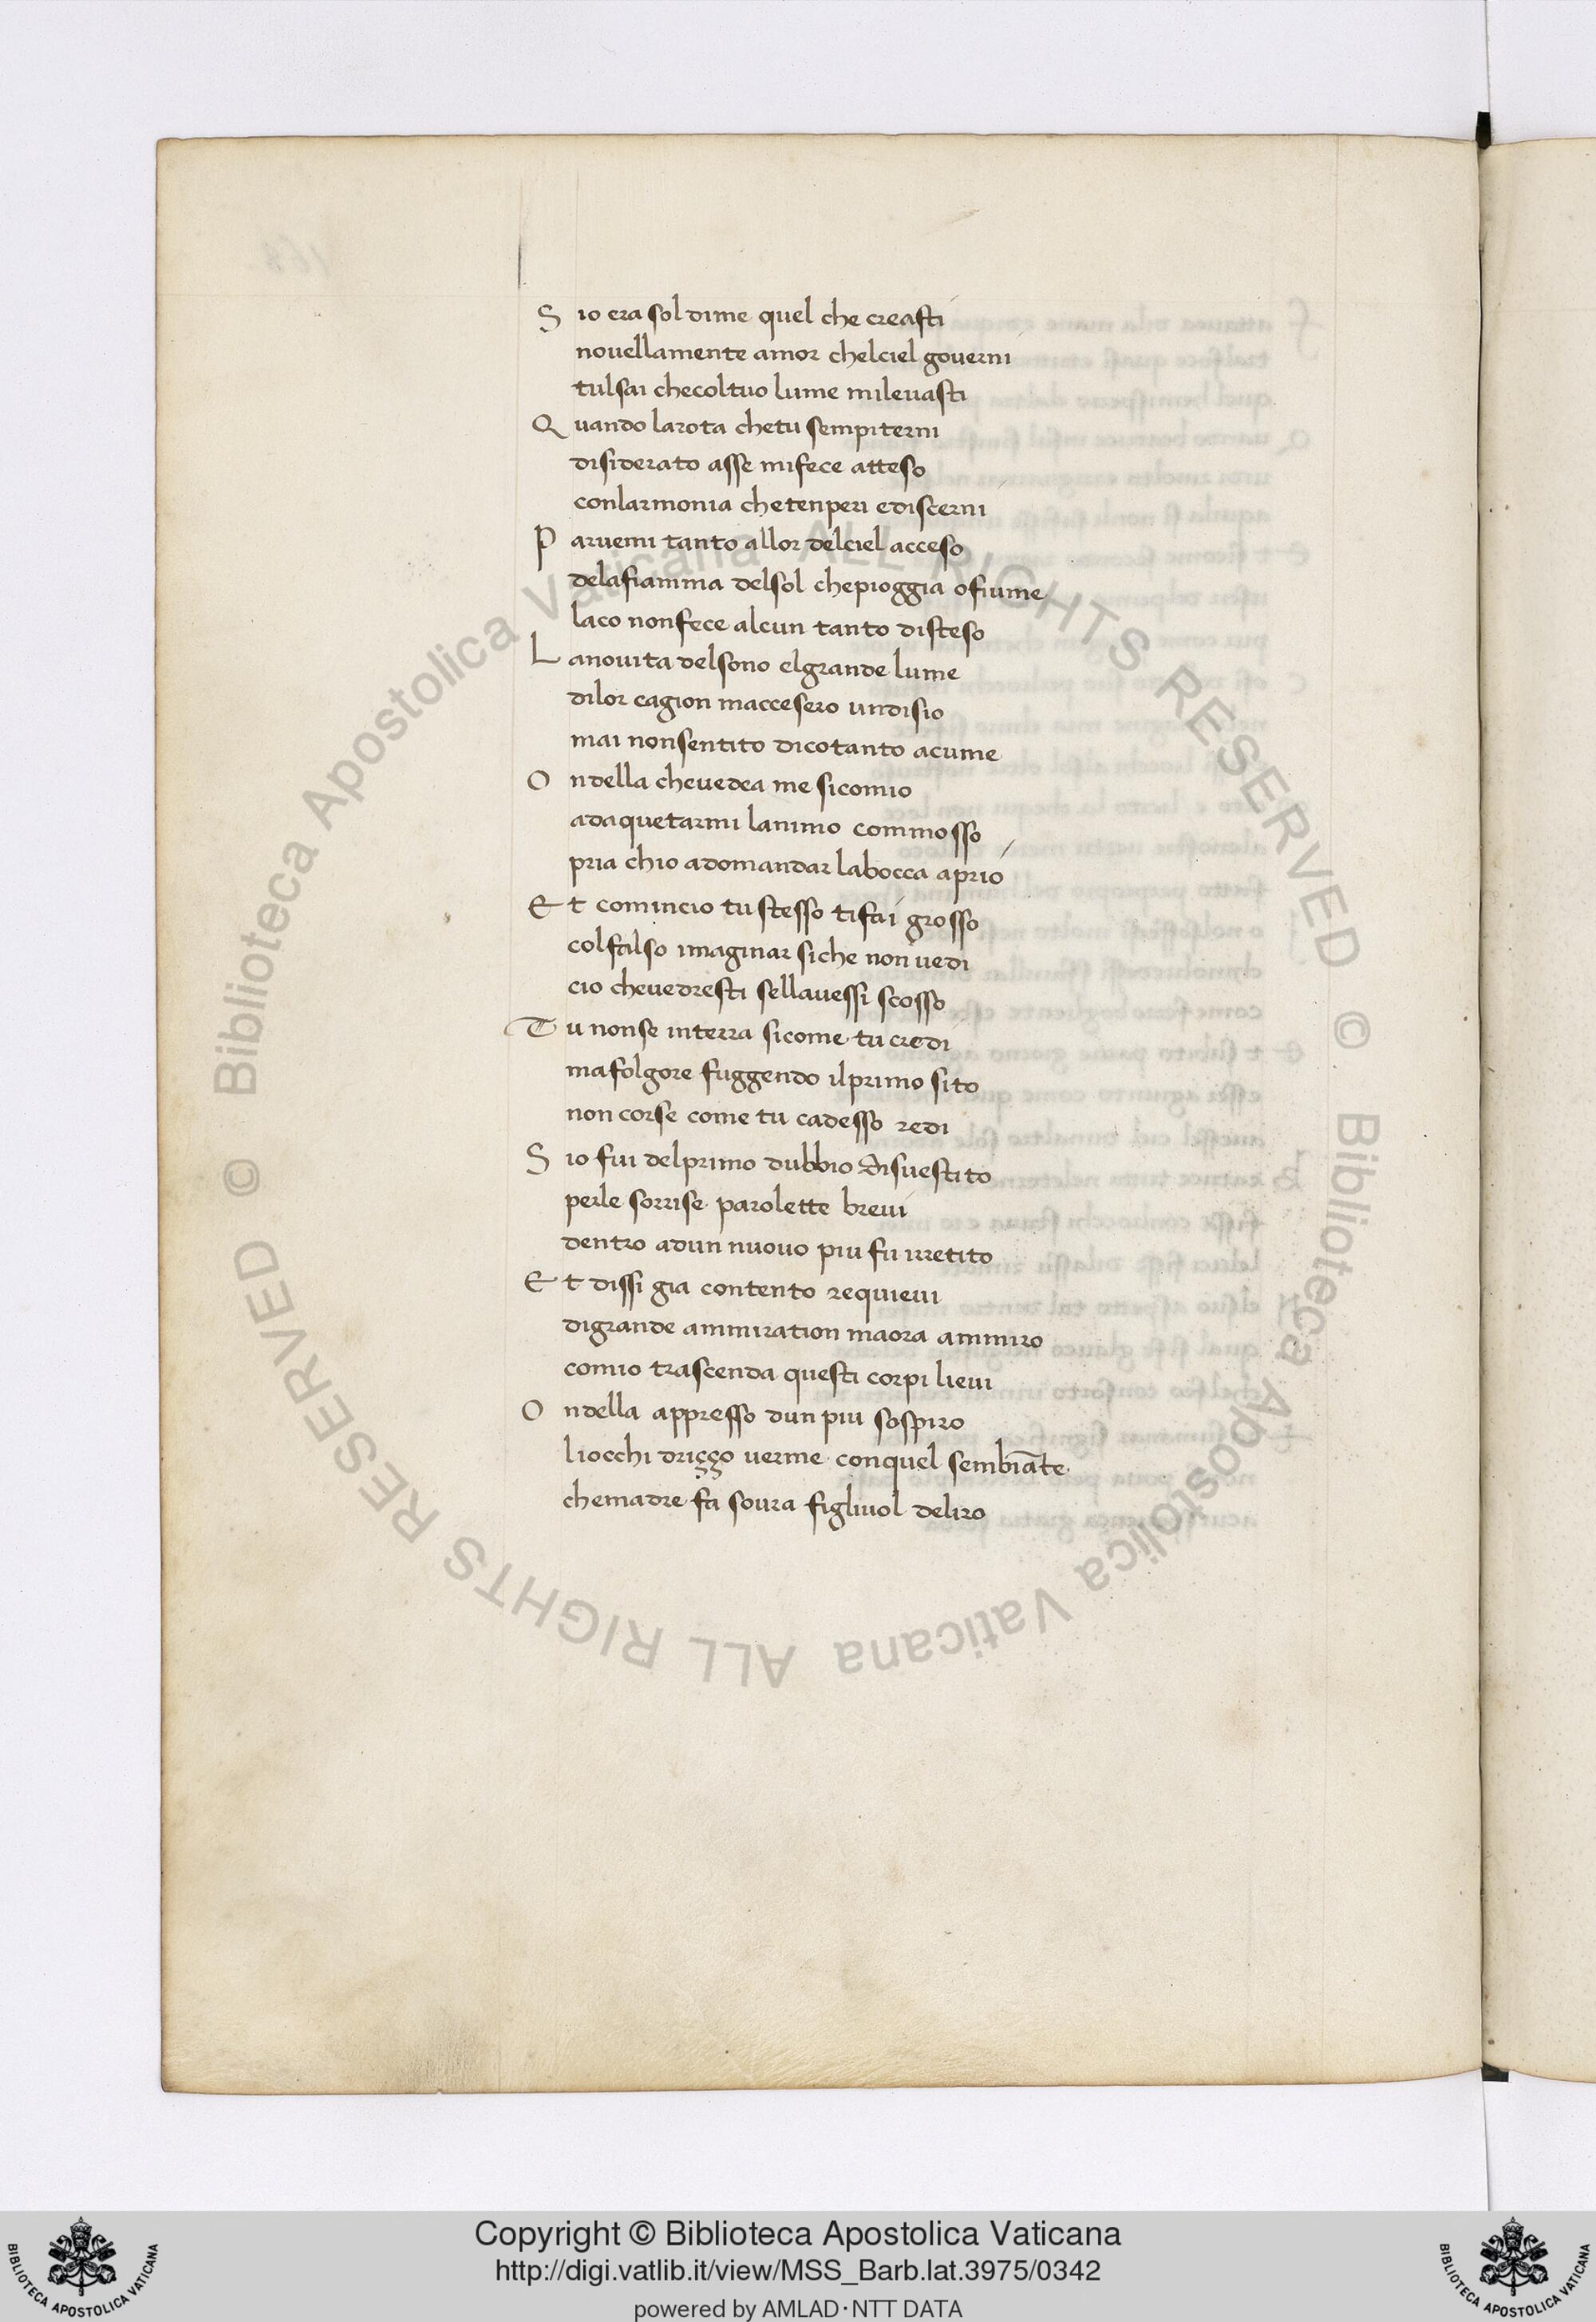 S io era sol dime quel che creasti
novellamente amor chelciel governi
tulsai checoltuo lume milevasti
Q uando larota chetu sempiterni
disiderato asse mifece atteso
conlarmonia chetenperi ediscerni
P arvemi tanto allor delciel acceso
delafiamma delsol chepioggia ofiume
laco nonfece alcun tanto disteso
L anovita delsono elgrande lume
dilor cagion maccesero undisio
mai nonsentito dicotanto acume
O ndella chevedea me sicomio
adaquetarmi lanimo commosso
pria chio adomandar labocca aprio
E t comincio tu stesso tifai grosso
colfalso imaginar siche non vedi
cio chevedresti sellavessi scosso
T u nonse interra sicome tu credi
mafolgore fuggendo ilprimo sito
non corse come tu cadesso redi
S io fui delprimo dubbio disvestito
perle sorrise parolette brevi
dentro adun nuovo piu fu irretito
E t dissi gia contento requievi
digrande ammiration maora ammiro
comio trascenda questi corpi lievi
O ndella appresso dun piu sospiro
liocchi driççо verme conquel sembiāte
chemadre fa sovra figliuol deliro
© Biblioteca Apostolica Vaticana ALL RIGHTS RESERVED © Biblioteca Apostolica Vaticana ALL RIGHTS RESERVED
BIBLIOTECA APOSTOLICA VATICANA
Copyright © Biblioteca Apostolica Vaticana
http://digi.vatlib.it/view/MSS_Barb.lat.3975/0342
powered by AMLAD·NTT DATA
BIBLIOTECA APOSTOLICA VATICANA